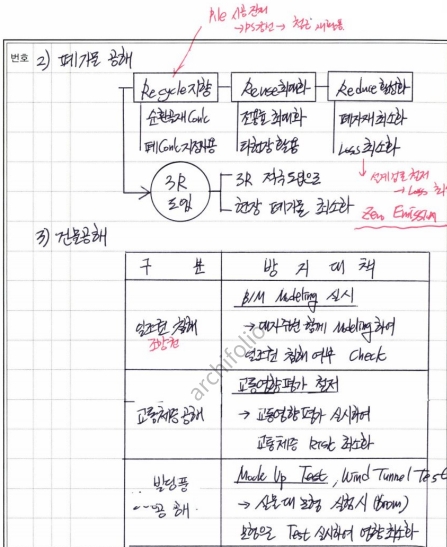 Pile 시공 잔재
번호 2) 폐기물 공해
Recycle 지향 Reuse 최대화 Reduce 활성화
순환골재 Conc 전용률 최대화 폐자재 최소화
폐Conc 타현장 활용 Loss 최소화
→ Loss
3R 도입
3R 적극 도입으로
현장 폐기물 최소화
Zero Emission
3) 건물공해
구 분 방 지 대 책
BIM Modeling 실시
일조권 침해 → 대지주변 함께 Modeling 하여
조망권
일조권 침해 여부 Check
교통영향평가 철저
교통체증 공해 → 교통영향평가 실시하여
교통체증 Risk 최소화
Mock Up Test, Wind Tunnel Test
빌딩풍
공해 → 실물대 모형 시험시
모형으로 Test 실시하여 영향 최소화
archifolio